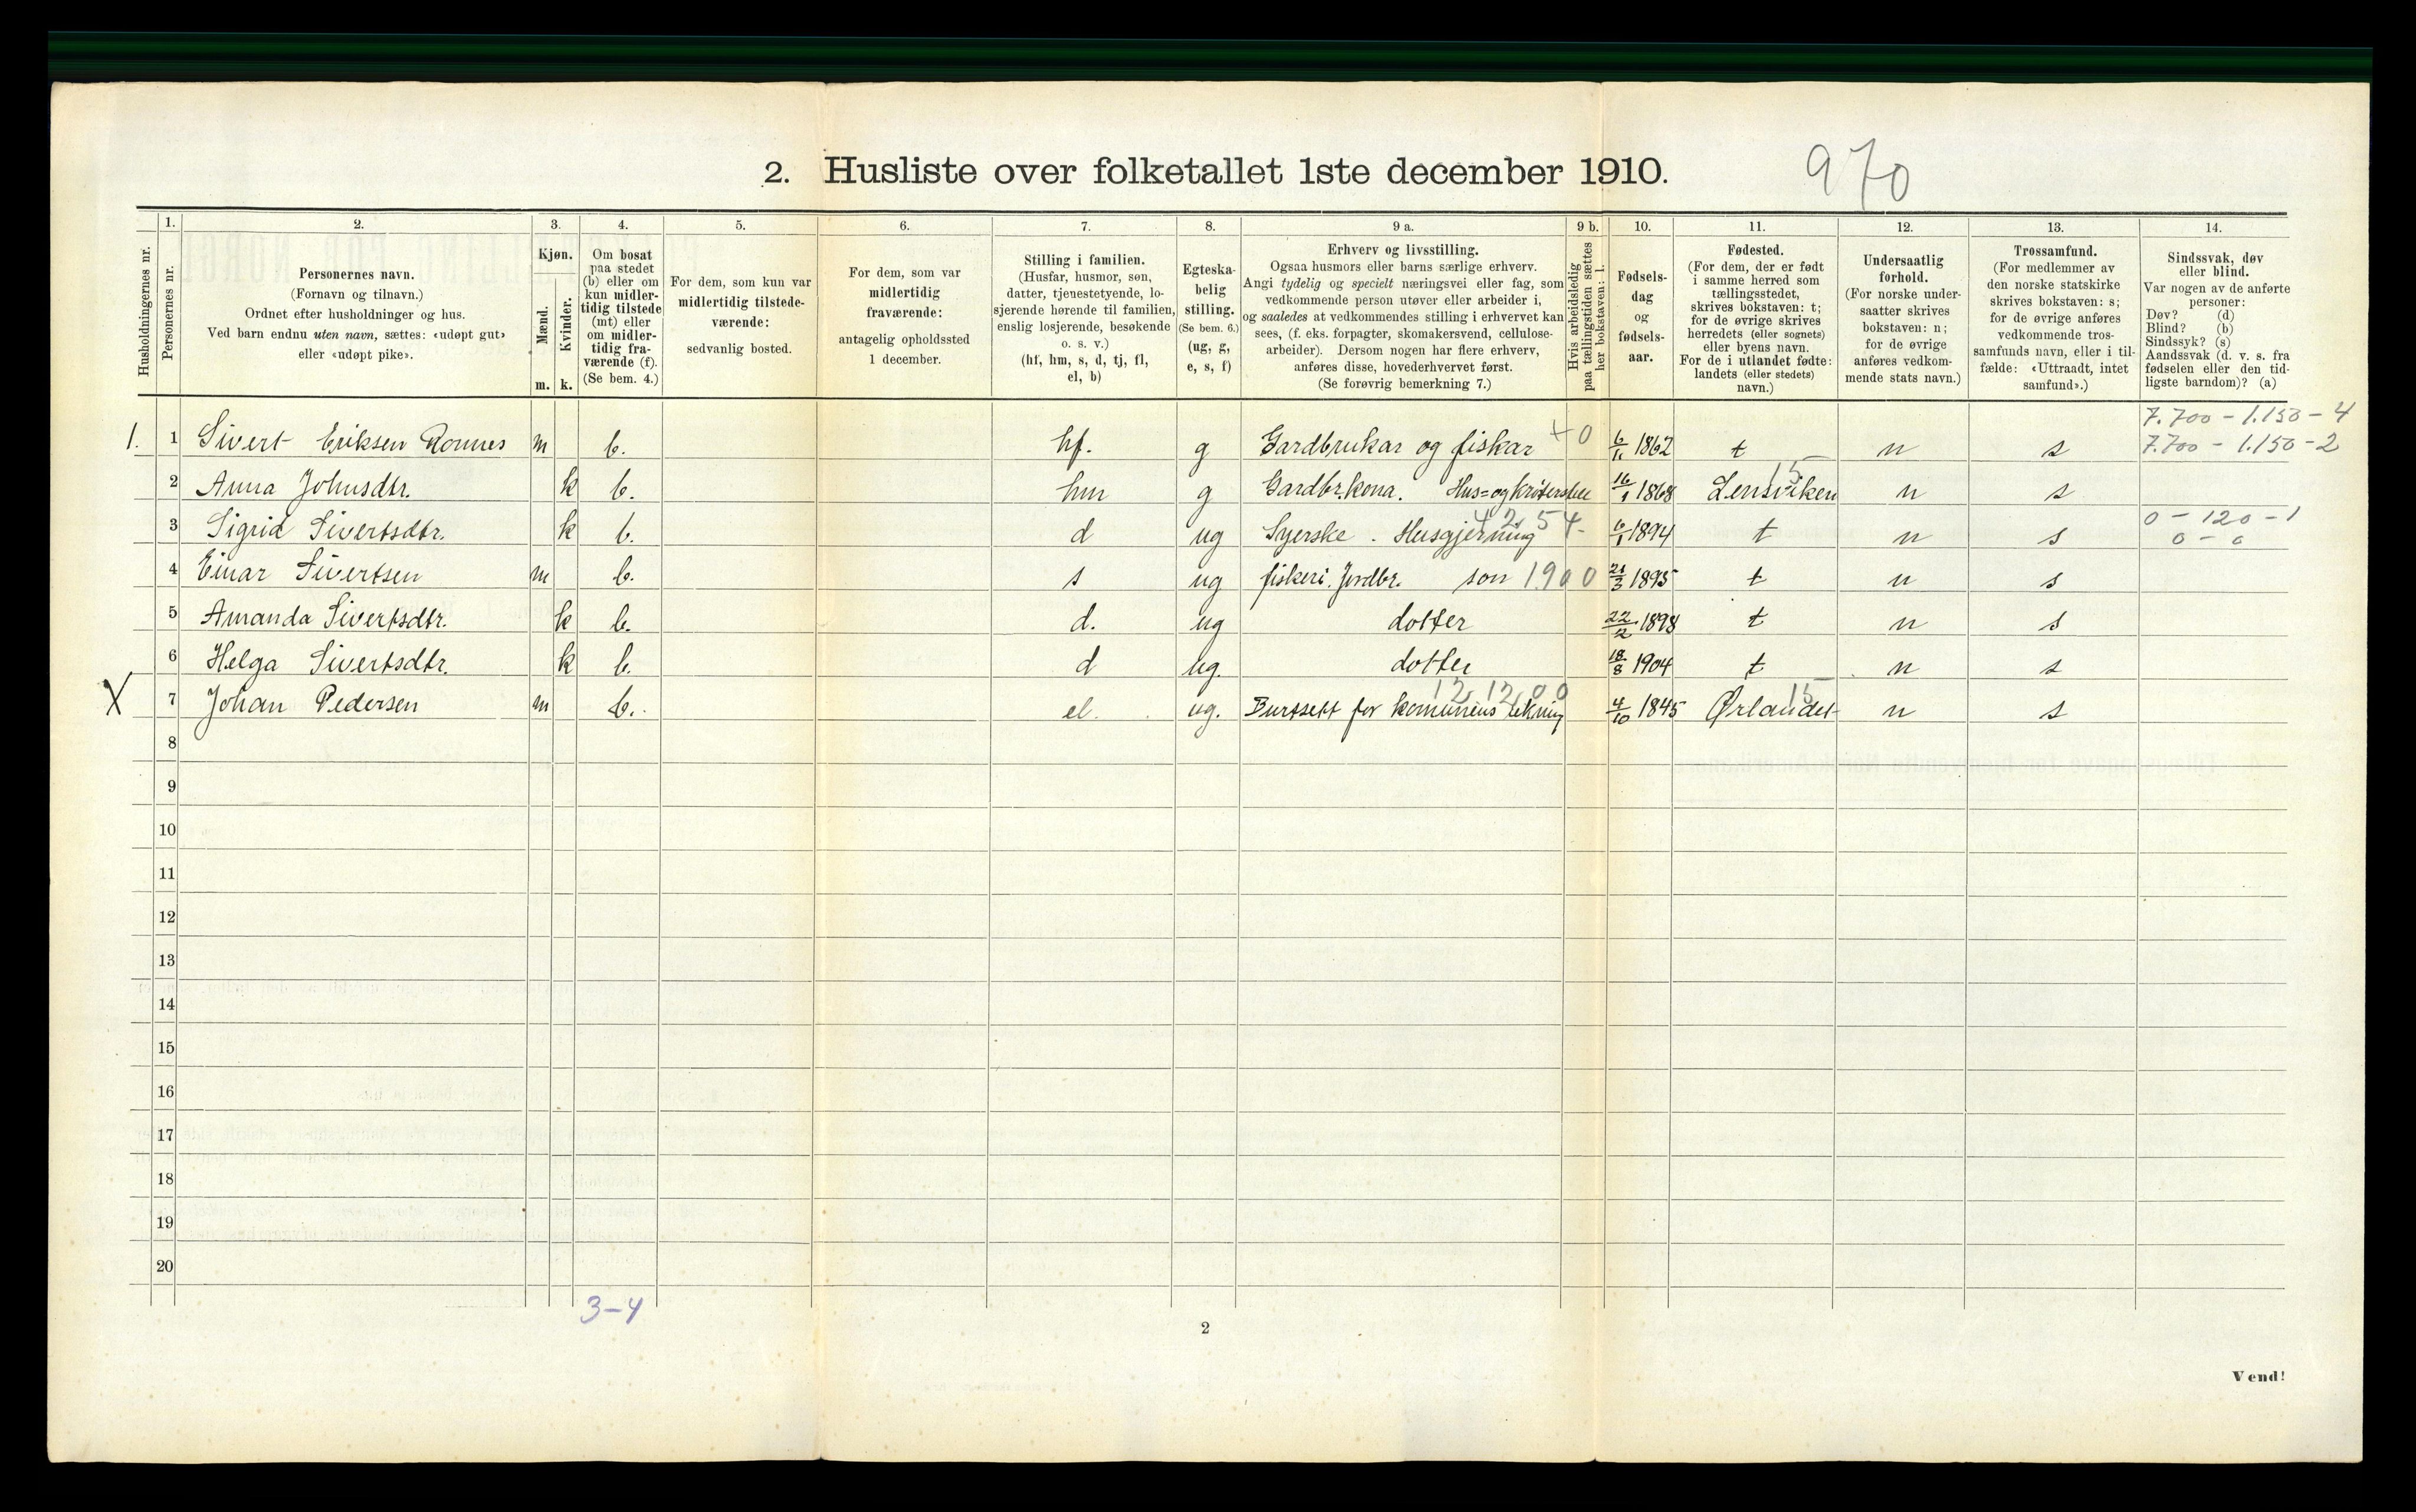 2. Husliste over folketallet 1ste december 1910.
970
Husholdningernes nr.
1. Personernes nr.
2. Personernes navn.
(Fornavn og tilnavn.)
Ordnet efter husholdninger og hus.
Ved barn endnu uten navn, sættes: «udøpt gut»
eller «udøpt pike».
3. Kjøn.
Mænd. m.
Kvinder. k.
4. Om bosat
paa stedet
(b) eller om
kun midler-
tidig tilstede
(mt) eller
om midler-
tidig fra-
værende (f).
(Se bem. 4.)
5. For dem, som kun var
midlertidig tilstede-
værende:
sedvanlig bosted.
6. For dem, som var
midlertidig
fraværende:
antagelig opholdssted
1 december.
7. Stilling i familien.
(Husfar, husmor, søn,
datter, tjenestetyende, lo-
sjerende hørende til familien,
enslig losjerende, besøkende
o. s. v.)
(hf, hm, s, d, tj, fl,
el, b)
8. Egteska-
belig
stilling.
(Se bem. 6.)
(ug, g,
e, s, f)
9 a. Erhverv og livsstilling.
Ogsaa husmors eller barns særlige erhverv.
Angi tydelig og specielt næringsvei eller fag, som
vedkommende person utøver eller arbeider i,
og saaledes at vedkommendes stilling i erhvervet kan
sees, (f. eks. forpagter, skomakersvend, cellulose-
arbeider). Dersom nogen har flere erhverv,
anføres disse, hovederhvervet først.
(Se forøvrig bemerkning 7.)
9 b. Hvis arbeidsledig
paa tællingstiden sættes
her bokstaven: l.
10. Fødsels-
dag
og
fødsels-
aar.
11. Fødested.
(For dem, der er født
i samme herred som
tællingsstedet,
skrives bokstaven: t;
for de øvrige skrives
herredets (eller sognets)
eller byens navn.
For de i utlandet fødte:
landets (eller stedets)
navn.)
12. Undersaatlig
forhold.
(For norske under-
saatter skrives
bokstaven: n;
for de øvrige
anføres vedkom-
mende stats navn.)
13. Trossamfund.
(For medlemmer av
den norske statskirke
skrives bokstaven: s;
for de øvrige anføres
vedkommende tros-
samfunds navn, eller i til-
fælde: «Uttraadt, intet
samfund».)
14. Sindssvak, døv
eller blind.
Var nogen av de anførte
personer:
Døv? (d)
Blind? (b)
Sindssyk? (s)
Aandssvak (d. v. s. fra
fødselen eller den tid-
ligste barndom)? (a)
7.700 - 1.150 - 4
1. 1 Sivert Eriksen Ronnes m b. hf. g Gardbrukar og fiskar +0 6/11 1862 t n s 7.700 - 1.150 - 2
15
2 Anna Johnsdtr. k b. hm g Gardbr.kona. Hus= og krøterstell 16/1 1868 Lensviken n s
4254 0 - 120 - 1
3 Sigrid Sivertsdtr. k b. d ug Syerske. Husgjerning 6/1 1894 t n s 0 - 0
4 Einar Sivertsen m b. s ug fiskeri. Jordbr. son 1900 21/3 1895 t n s
5 Amanda Sivertsdtr. k b. d. ug dotter 22/2 1898 t n s
6 Helga Sivertsdtr. k b. d ug. dotter 18/8 1904 t n s
12.12.00 15
X 7 Johan Pedersen m b. el. ug. Burtsett for komunens rekning 4/10 1845 Ørlandet n s
8
9
10
11
12
13
14
15
16
17
18
19
20
3-4
2
Vend!